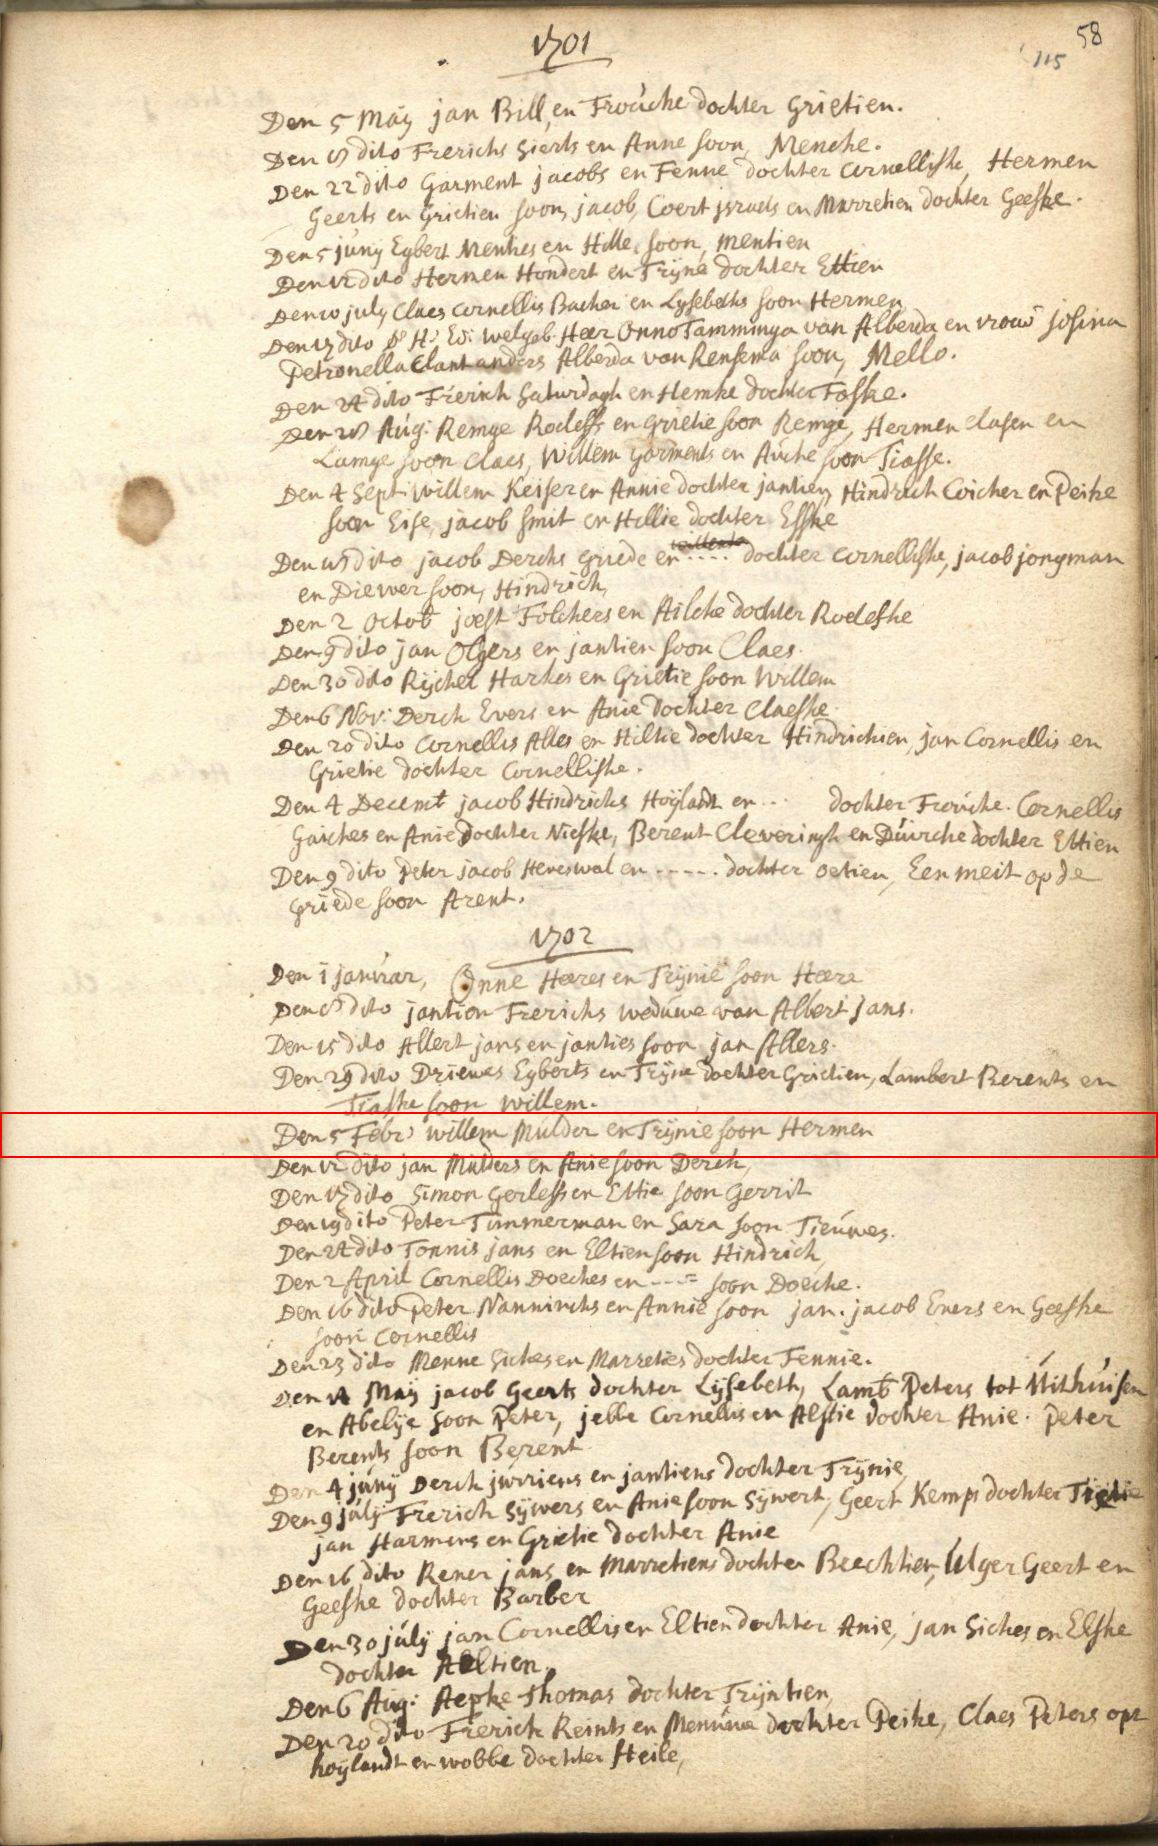 1701
58
115
Den 5 Maij jan Bill, en Frouche dochter Grietien.
Den 8 dito Frerichs Sierts en Anne soon, Menche.
Den 22 dito Garment jacobs en Fenne dochter Cornelliske, Hermen
Geerts en Grietien soon, jacob, Coert jsraels en Marretien dochter Geeske.
Den 5 juny Egbert Menties en Hille soon, mentien
Den 12 dito Hermen Hondert en Trijne dochter Ettien
Den 10 july Claes Cornellis Backer en Lysebeths soon Hermen
Den 17 dito Welgeb. Heer Onno Tamminga van Alberda en vrouw josina
Petronella Clant anders Alberda van Rensema soon, Mello.
Den 24 dito Frerich Saturdagh en Hemke dochter Foske.
Den 28 Aug: Remge Roelefs en Grietie soon Remge, Hermen Clasen en
Lamge soon Claes, Willem Garments en Auche soon Tiasse.
Den 4 Sept: Willem Keiser en Annie dochter jantien, Hindrich Coicher en Peike
soon Eise, jacob Smit en Hillie dochter Eske
Den 18 dito jacob Derchs Griede en .... dochter Cornelliske, jacob jongman
en Diewer soon, Hindrich,
Den 2 Octob joest Folchers en Ailche dochter Roeleske
Den 9 dito jan Olgers en jantien soon Claes.
Den 30 dito Rijchel Harkes en Grietie soon Willem
Den 6 Nov: Derch Evers en Anie dochter Claeske
Den 20 dito Cornellis Alles en Hiltie dochter Hindrichien, jan Cornellis en
Grietie dochter Cornelliske.
Den 4 Decemb jacob Hindrichs Hoijlandt en ... dochter Frouche. Cornellis
Gaiches en Anie dochter Nieske, Berent Cleveringh en Duirche dochter Ettien
Den 9 dito Peter jacob Heneswal en ..... dochter Oetien, Een meit op de
Griede soon Arent.
1702
Den 1 januar, Onne Heeres en Trijnie soon Heere
Den 8 dito jantien Frerichs weduwe van Albert jans.
Den 15 dito Allert jans en janties soon jan Allers.
Den 29 dito Driewes Egberts en Trijne dochter Grietien, Lambert Berents en
Tiaske soon Willem.
Den 5 Febr willem Mulder en Trijnie soon Hermen
Den 12 dito jan Mulders en Anie soon Derch,
Den 17 dito Simon Gerlefs en Ettie soon Gerrit
Den 19 dito Peter Timmerman en Sara soon Tieuwes.
Den 24 dito Tonnis jans en Eltien soon Hindrich,
Den 2 April Cornellis Doeches en ---- soon Doeche.
Den 16 dito Peter Nanninchs en Annie soon jan. jacob Eners en Geeske
soon Cornellis
Den 23 dito Menne Sickes en Marreties dochter Fennie.
Den 14 Maij jacob Geerts dochter Lijsebeth, Lamb Peters tot Uithuisen
en Abelije soon Peter, jelle Cornellis en Alstie dochter Anie. Peter
Berents soon Berent
Den 4 junij Derch jurriens en jantiens dochter Trijnie,
Den 9 julij Frerich Sijwers en Anie soon Sijwert, Geert Kemps dochter Tietie
jan Harmens en Grietie dochter Anie
Den 16 dito Rener jans en Marretiens dochter Beechtien, Ulger Geert en
Geeske dochter Barber
Den 30 julij jan Cornellis en Eltien dochter Anie, jan Siches en Elske
dochter Aeltien.
Den 6 Aug: Aepke Thomas dochter Trijntien,
Den 20 dito Frerich Reints en Menuwe dochter Peike, Claes Peters opt
hoijlandt en wobbe dochter Heile,